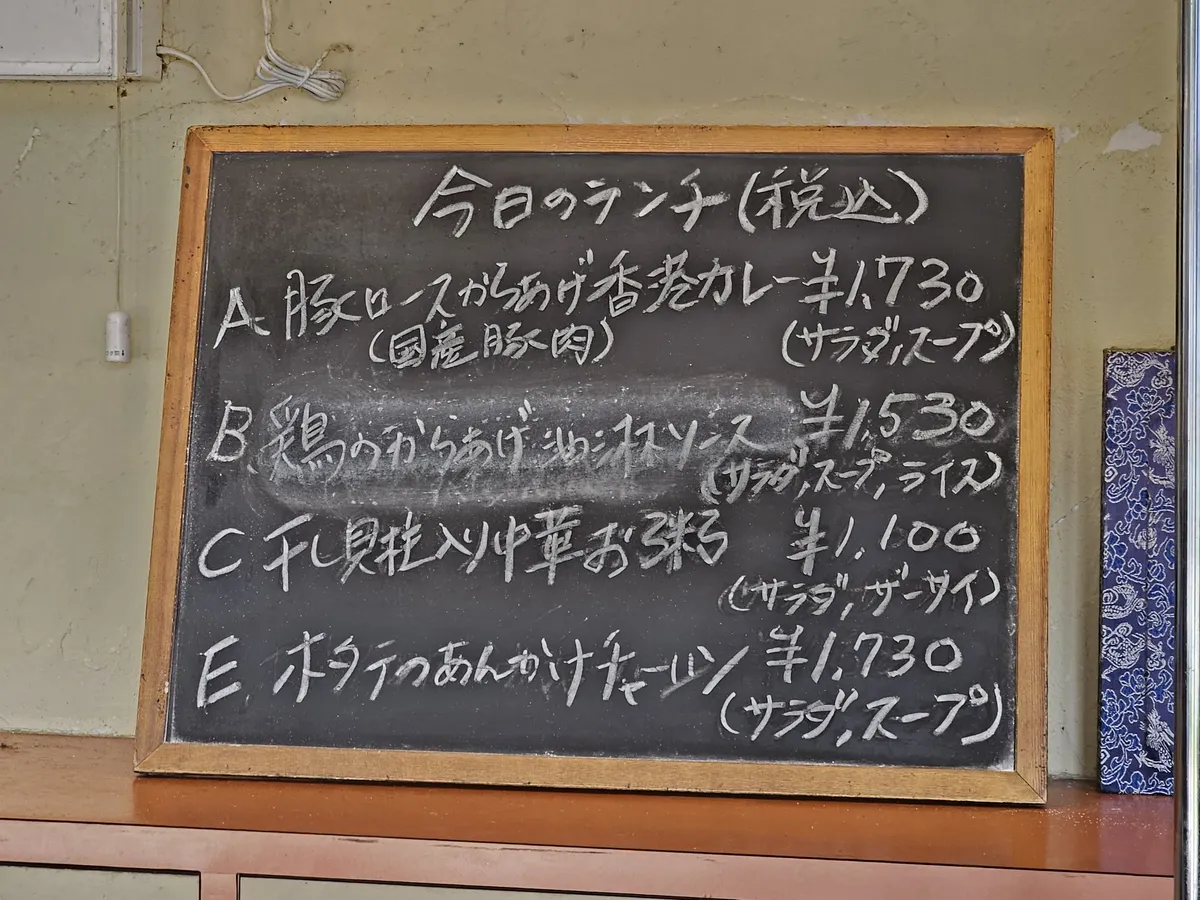 今日のランチ(税込)
A 豚ロースからあげ香港カレー ¥1,730
(国産豚肉) (サラダ,スープ)
B. 鶏のからあげ油淋ソース ¥1,530
(サラダ,スープ,ライス)
C 干し貝柱入り中華お粥 ¥1,100
(サラダ,ザーサイ)
E. ホタテのあんかけチャーハン ¥1,730
(サラダ,スープ)